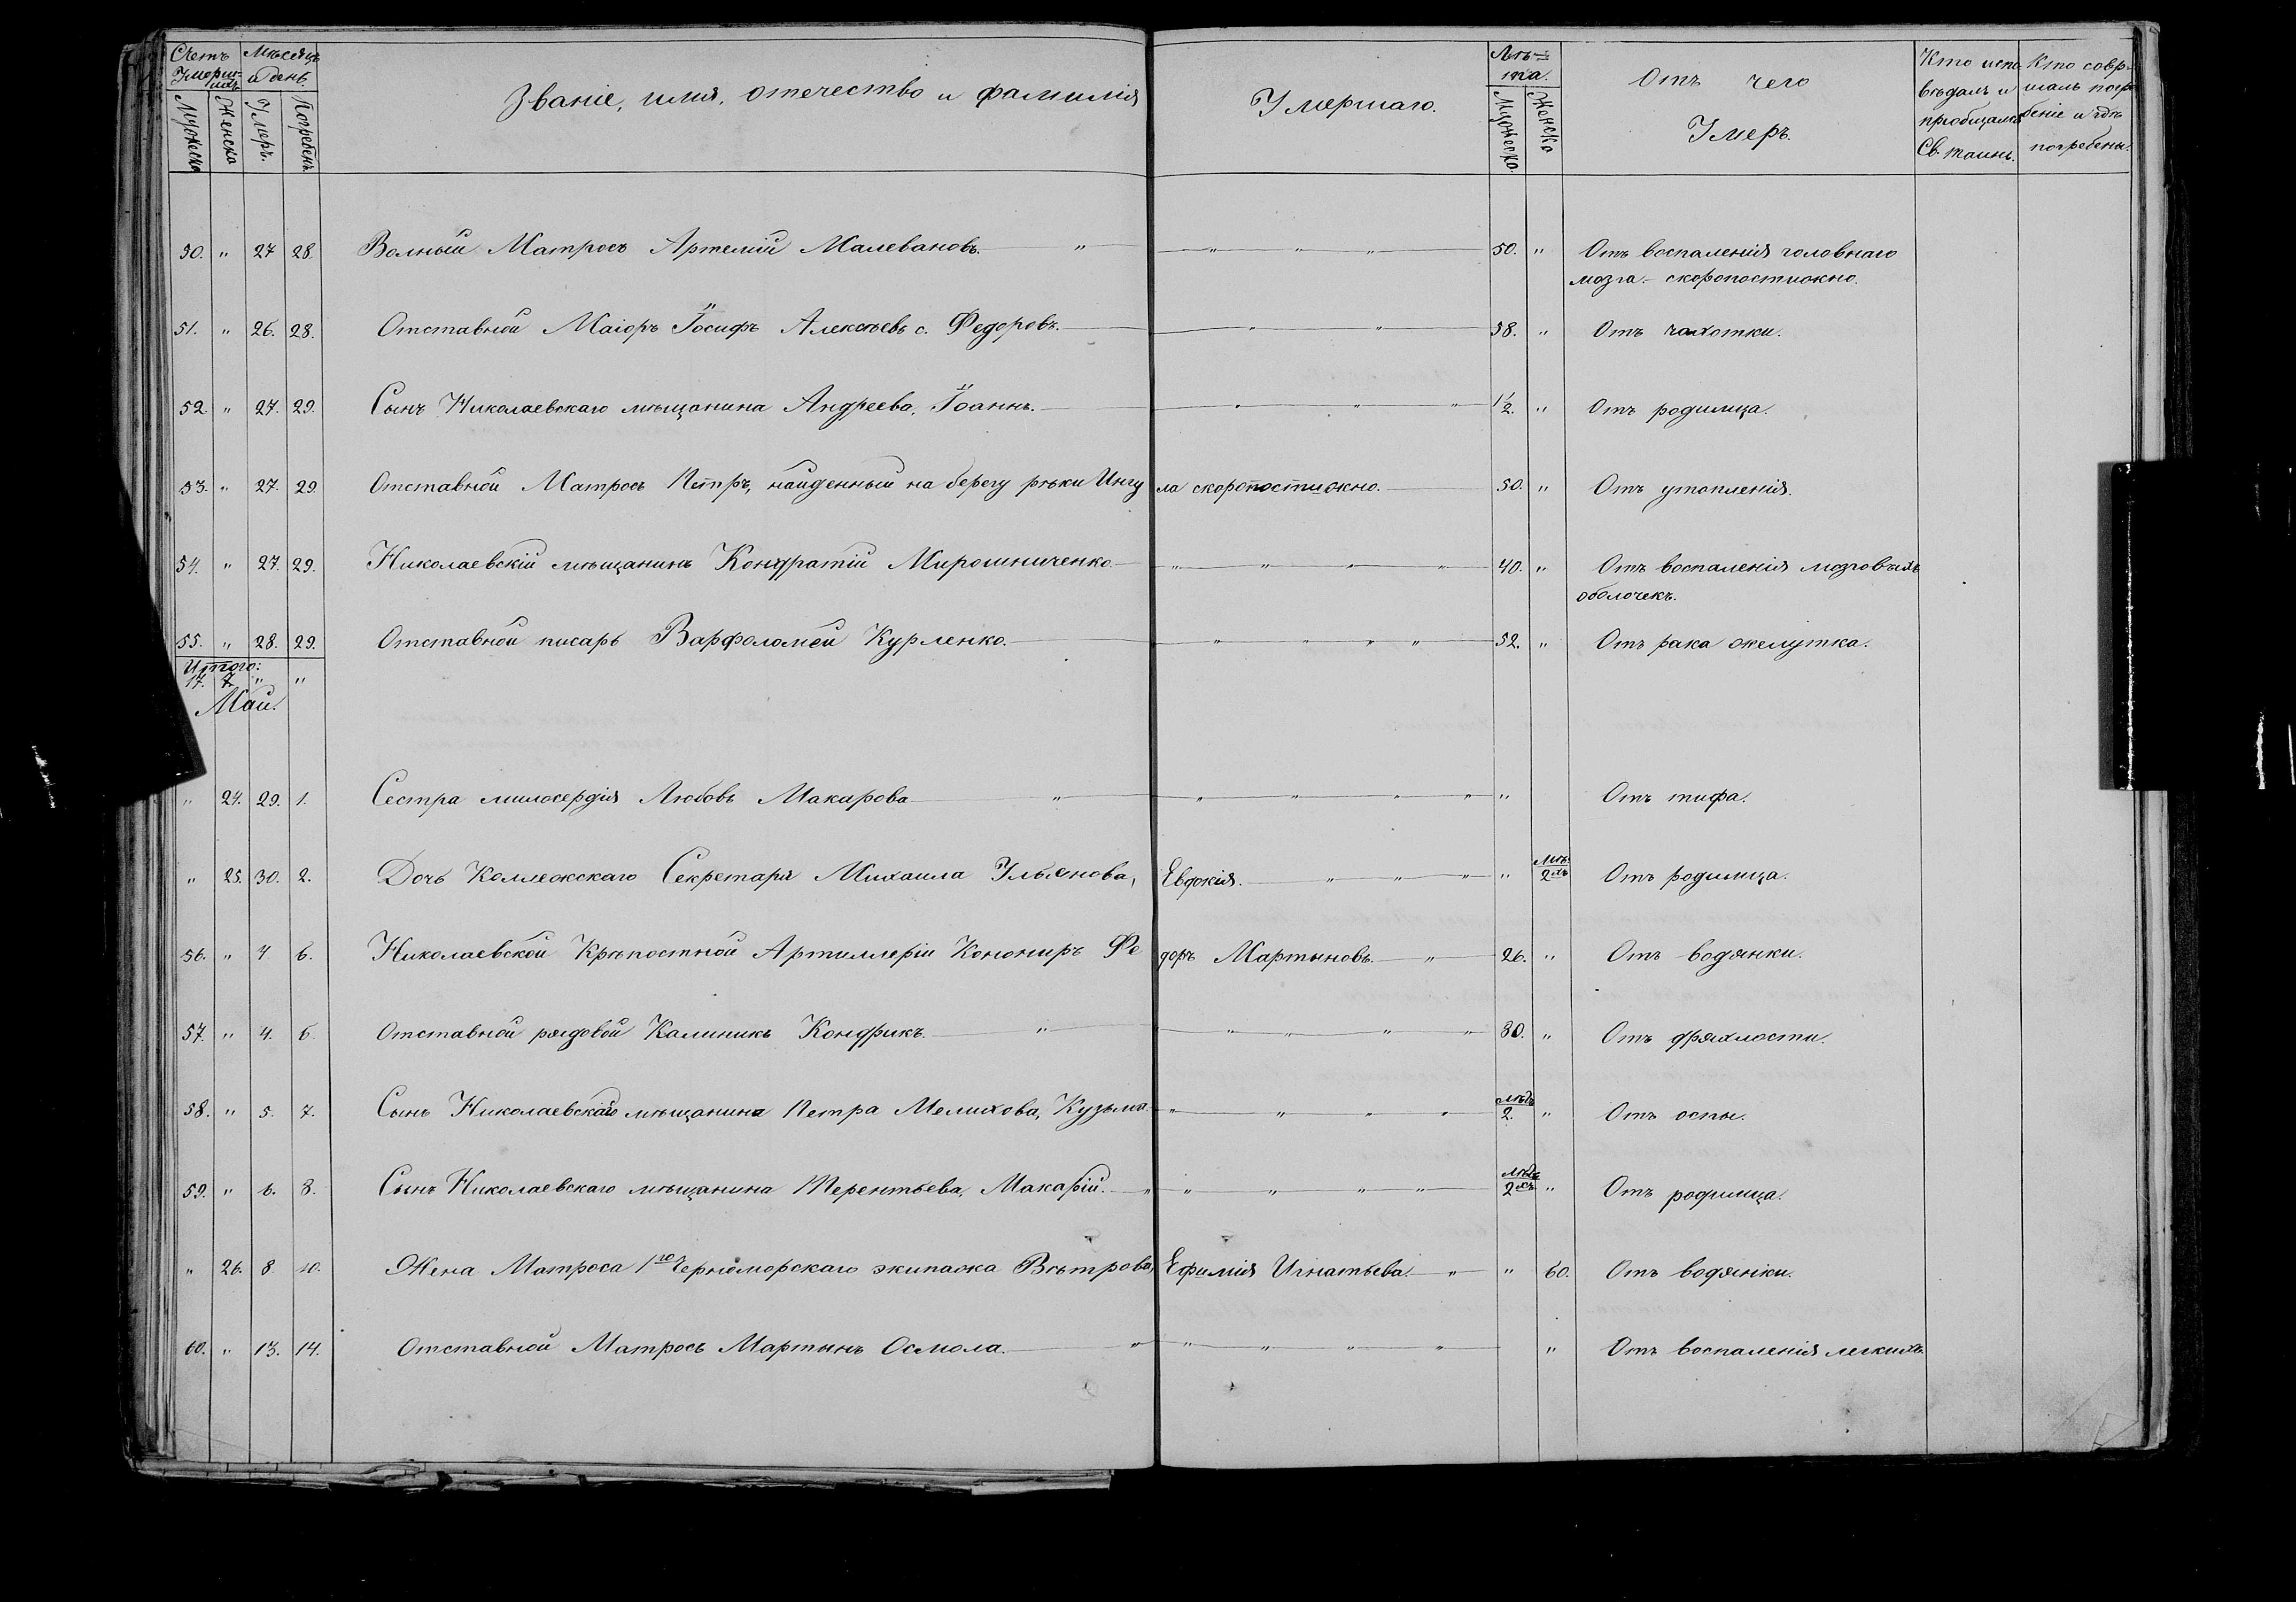 Счетъ Умершихъ
Мѣсяцъ и день.
Мужеска
Женска
Умеръ.
Погребенъ
Званіе, имя, отечество и фамилія Умершаго.
Лѣта.
Мужеска.
Женска
Отъ чего Умеръ.
Кто исповѣдалъ и пріобщалъ Св. таинъ.
Кто совершалъ погребеніе и гдѣ погребены.
50. " 27 28. Волный Матросъ Артемій Малевановъ. " " " " 50. " Отъ воспаленія головнаго
мозга.- скоропостижно.
51. " 26. 28. Отставной Маіоръ Іосифъ Алексѣевъ с. Федоровъ. " " 58. " Отъ чахотки.
52. " 27. 29. Сынъ Николаевскаго мѣщанина Андреева, Іоаннъ. " " " 1/2. " Отъ родимца.
53. " 27. 29. Отставной Матросъ Петръ, найденный на берегу рѣки Ингула скоропостижно. 50. " Отъ утопленія.
54. " 27. 29. Николаевскій мѣщанинъ Кондратій Мирошниченко. " " " " 40. " Отъ воспаленія мозговыхъ
оболочекъ.
55. " 28. 29. Отставной писарь Варфоломей Курленко. " " " " 52. " Отъ рака желутка.
Итого:
17. 7. " "
Май.
" 24. 29. 1. Сестра милосердія Любовь Макарова " " " " " " Отъ тифа.
" 25. 30. 2. Дочь Коллежскаго Секретаря Михаила Ульянова, Евдокія. " " " " 2хъ Отъ родимца.
56. " 4. 6. Николаевской Крѣпостной Артиллеріи Канониръ Федоръ Мартыновъ. " 26. " Отъ водянки.
57. " 4. 6. Отставной рядовой Калиникъ Кондрикъ. " " " " " 80. " Отъ дряхлости.
58. " 5. 7. Сынъ Николаевскаго мѣщанина Петра Мелихова, Кузьма. " " " " 2. " Отъ оспы.
59. " 6. 8. Сынъ Николаевскаго мѣщанина Терентьева, Макарій. " " " " " 2хъ " Отъ родимца.
" 26. 8 10. Жена Матроса 1го Черноморскаго экипажа Вѣтрова, Ефимія Игнатьева. " " 60. Отъ водянки.
60. " 13. 14. Отставной Матросъ Мартынъ Осмола. " " " " " " Отъ воспаленія легкихъ.